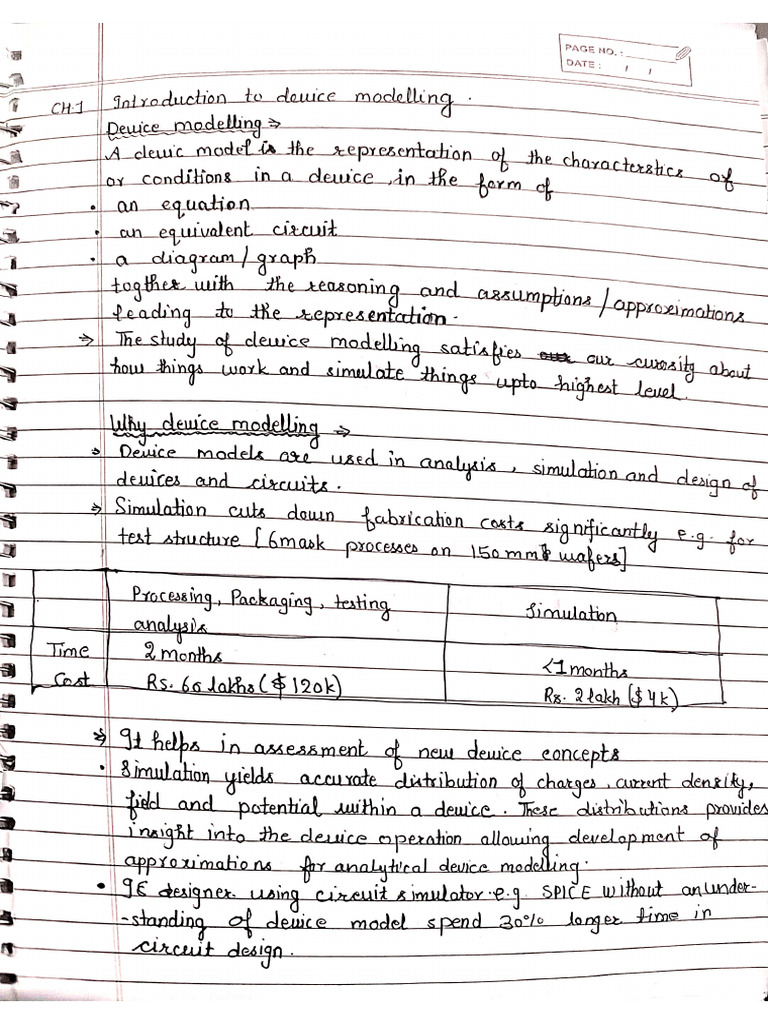 PAGE NO. :
DATE : / /
CH.1 Introduction to device modelling.
Device modelling ⇒
A devic model is the representation of the characterstics of
or conditions in a device, in the form of
• an equation
• an equivalent circuit
• a diagram/graph
togther with the reasoning and assumptions/approximations
leading to the representation.
⇒ The study of device modelling satisfies our curosity about
how things work and simulate things upto highest level.
Why device modelling ⇒
⇒ Device models are used in analysis, simulation and design of
devices and circuits.
⇒ Simulation cuts down fabrication costs significantly e.g. for
test structure [6mask processes on 150mm wafers]
Processing, Packaging, testing Simulation
analysis
Time 2 months <1 months
Cost Rs. 60 lakhs ($120k) Rs. 2 lakh ($4k)
⇒ It helps in assessment of new device concepts
• Simulation yields accurate distribution of charges, current density,
field and potential within a device. These distributions provides
insight into the device operation allowing development of
approximations for analytical device modelling.
• IC designer using circuit simulator e.g. SPICE without an under-
-standing of device model spend 30% longer time in
circuit design.